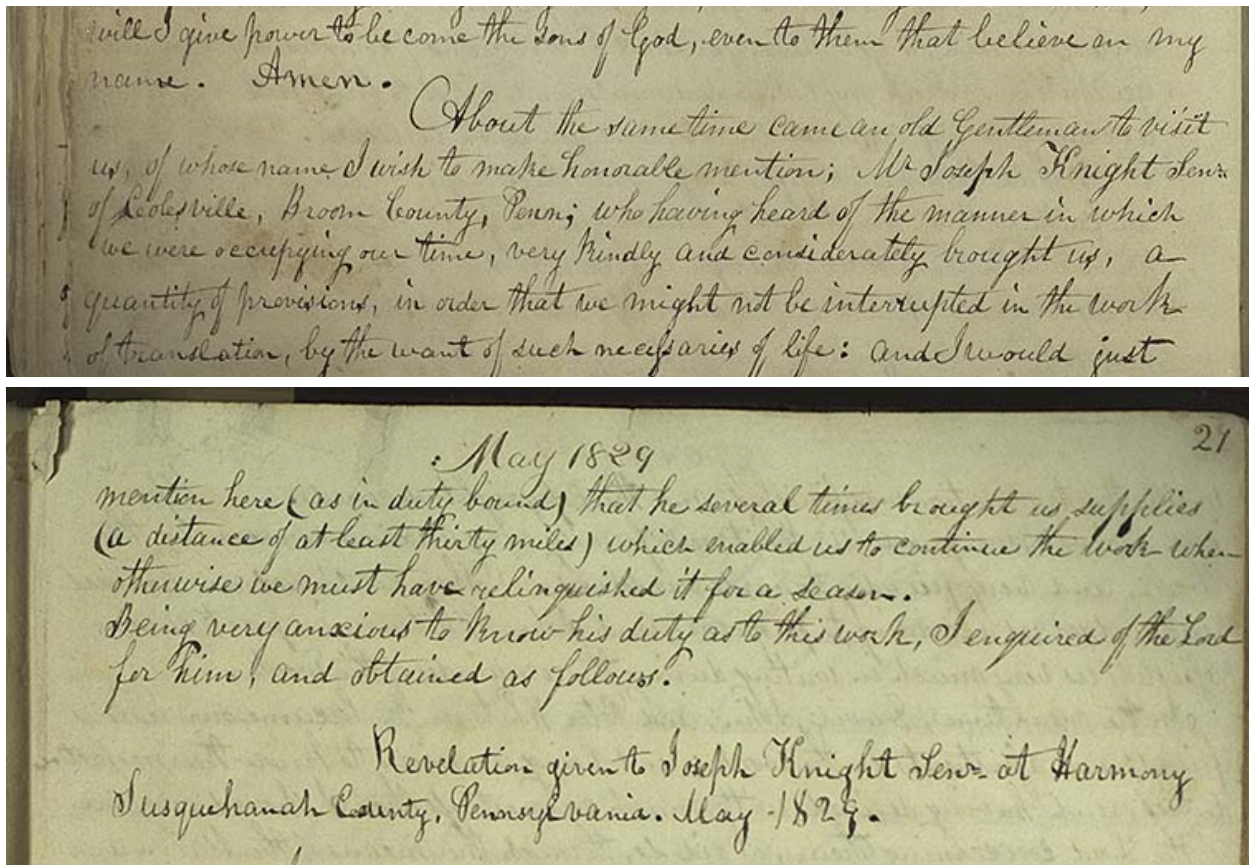 will I give power to become the sons of God, even to them that believe on my
name. Amen.
About the same time came an old Gentleman to visit
us, of whose name I wish to make honorable mention; Mr Joseph Knight Senr.
of Colesville, Broom County, Penn; who having heard of the manner in which
we were occupying our time, very kindly and considerately brought us, a
quantity of provisions, in order that we might not be interrupted in the work
of translation, by the want of such necessaries of life: and I would just
21
: May 1829
mention here (as in duty bound) that he several times brought us supplies
(a distance of at least thirty miles) which enabled us to continue the work when
otherwise we must have relinquished it for a season.
Being very anxious to know his duty as to this work, I enquired of the Lord
for him, and obtained as follows.
Revelation given to Joseph Knight Senr. at Harmony
Susquehanah County, Pennsylvania. May 1829.